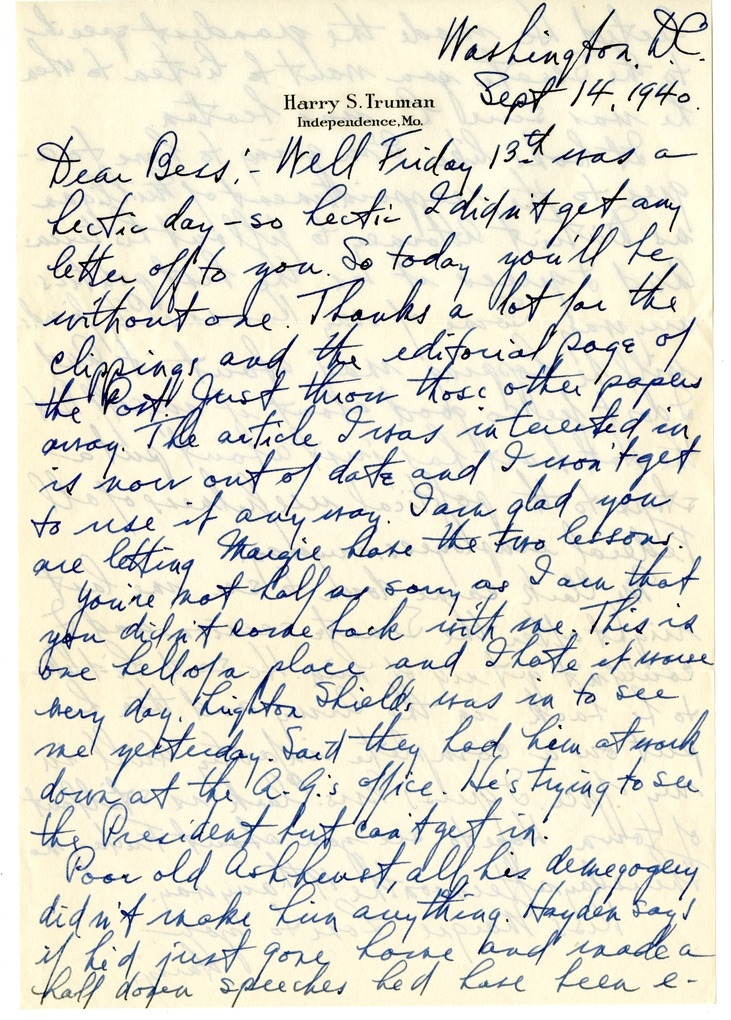 Washington, D.C.
Sept 14, 1940.
Harry S. Truman
Independence, Mo.
Dear Bess:- Well Friday 13th was a
hectic day - so hectic I didn't get any
letter off to you. So today you'll be
without one. Thanks a lot for the
clippings and the editorial page of
the Post. Just throw those other papers
away. The article I was interested in
is now out of date and I won't get
to use it any way. I am glad you
are letting Margie have the two lessons.
You're not half as sorry as I am that
you didn't come back with me. This is
one hell of a place and I hate it worse
every day. Leighton Shields was in to see
me yesterday. Said they had him at work
down at the A.G.'s office. He's trying to see
the President but can't get in.
Poor old Ashhurst, all his demegogery
didn't make him anything. Hayden says
if he'd just gone home and made a
half dozen speeches he'd have been e-